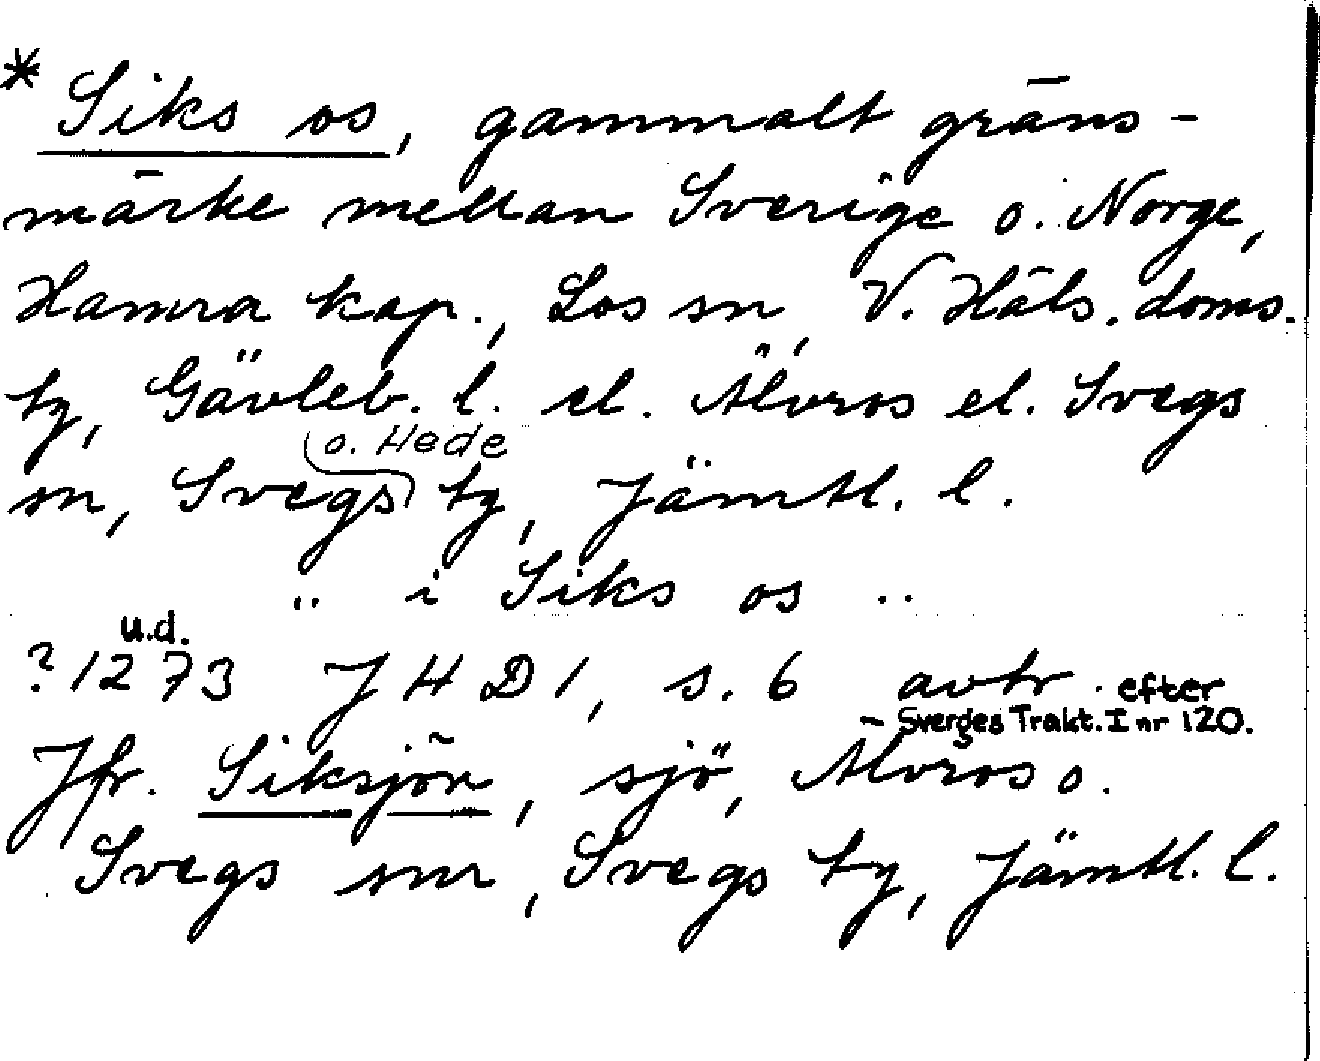 * Siks os, gammalt gräns-
märke mellan Sverige o. Norge,
Hamra kap., Los sn, V. Häls. doms.
tg, Gävleb. l. el. Älvros el. Svegs
o. Hede
sn, Svegs tg, Jämtl. l.
.. i Siks os ..
u.d.
?1273 JHD 1, s. 6 avtr. efter
– Sverges Trakt. I nr 120.
Jfr. Siksjön, sjö, Älvros o.
Svegs snr, Svegs tg, Jämtl. l.